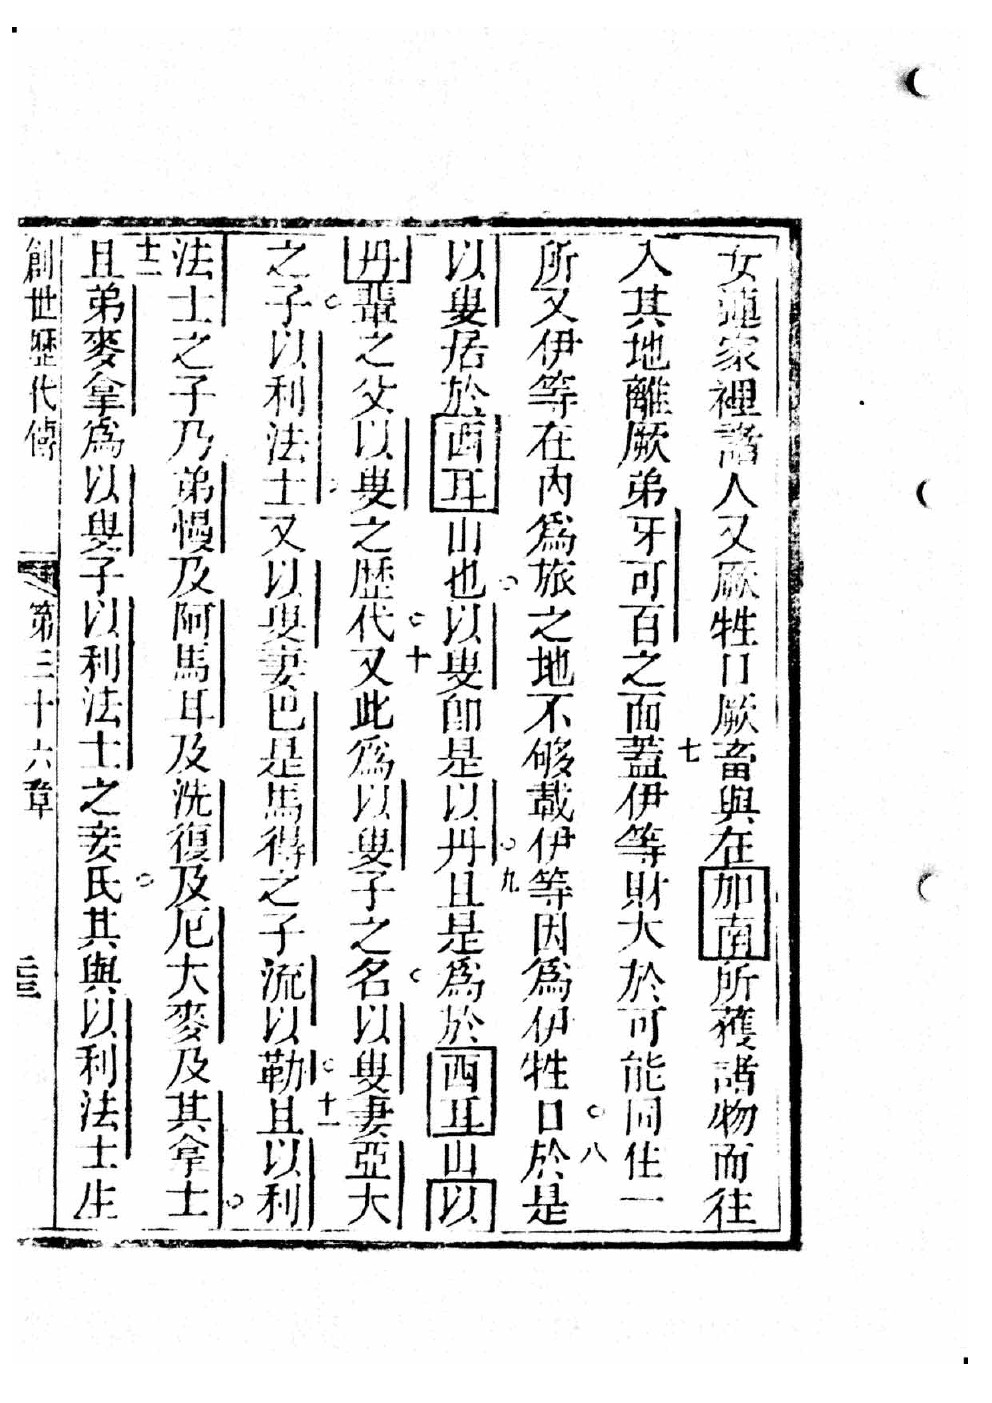 女連家裡諸人又厥牲口厥畜與在加南所獲諸物而往
入其地離厥弟牙可百之面七蓋伊等財大於可能同住一
所又伊等在內爲旅之地不够載伊等因爲伊牲口八於是
以叟居於西耳山也以叟卽是以丹九且是爲於西耳山以
丹輩之父以叟之歷代十又此爲以叟子之名以叟妻亞大
之子以利法士又以叟妻巴是馬得之子流以勒十一且以利
法士之子乃弟慢及阿馬耳及洗復及厄大麥及其拿士
十二且弟麥拿爲以叟子以利法士之妾氏其與以利法士生
創世歷代傳 第三十六章